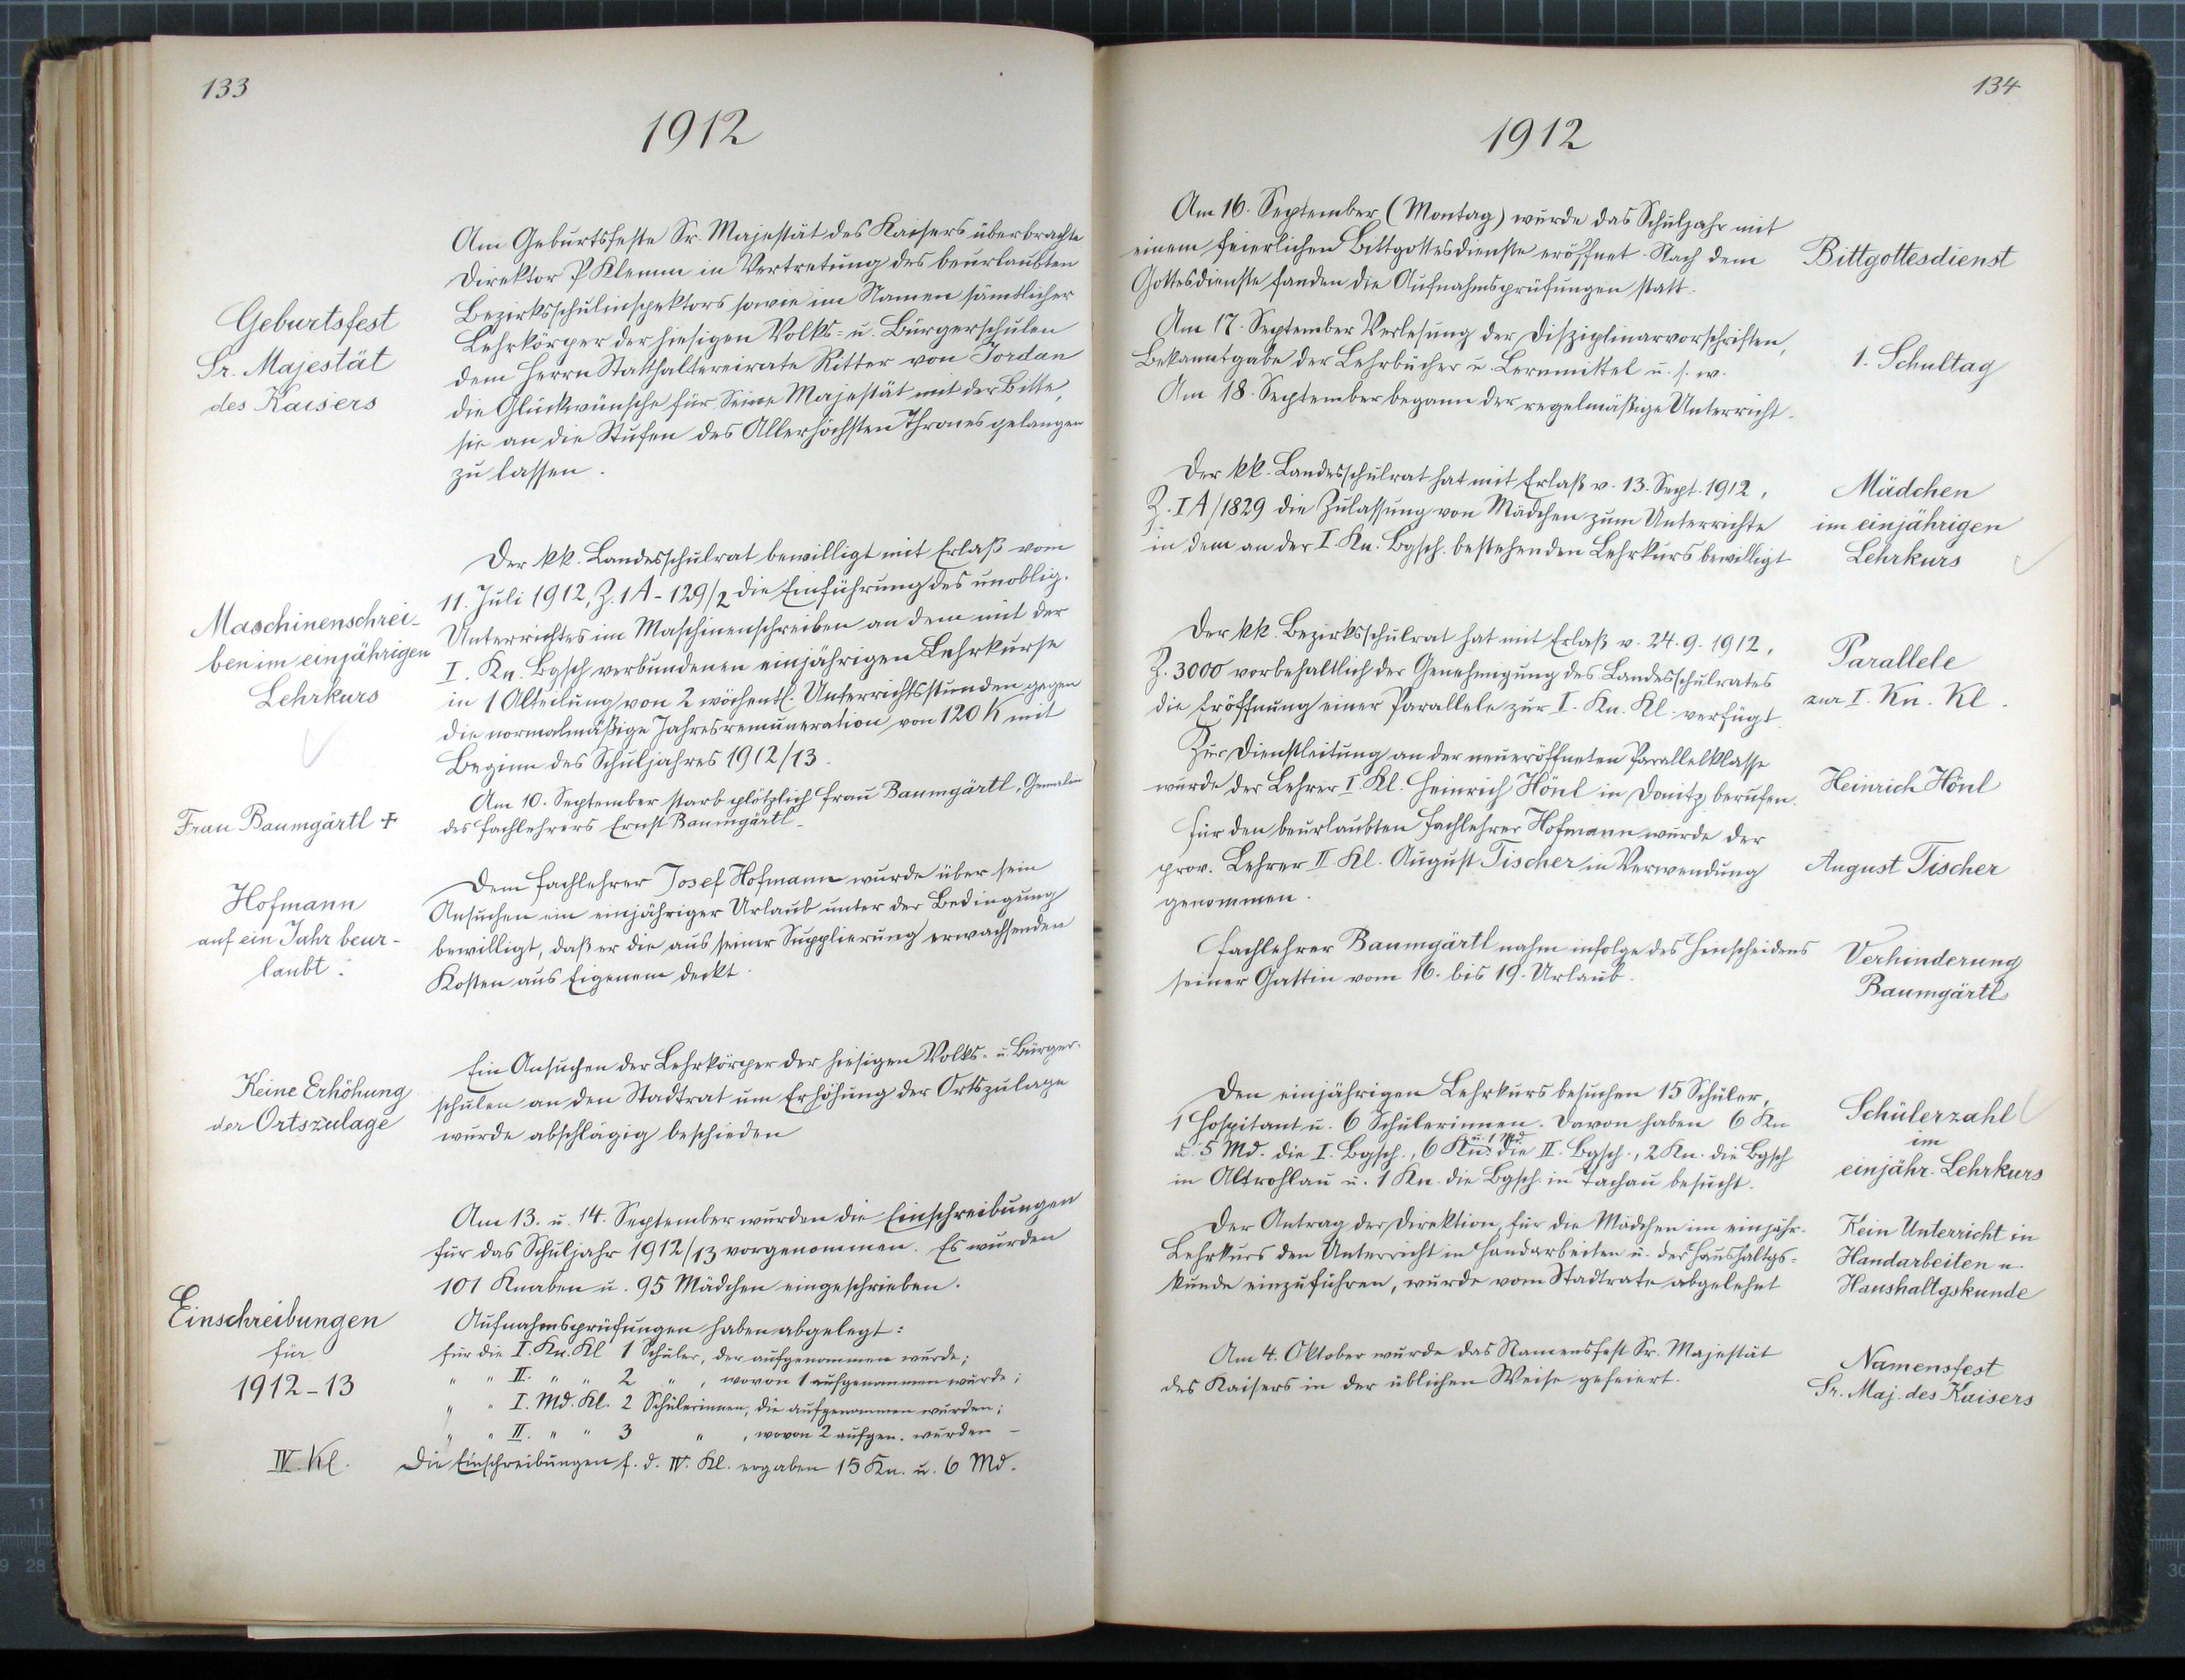 133
1912
Geburtsfest
Sr. Majestät
des Kaisers
Am Geburtsfeste Sr. Majestät des Kaisers überbrachte
Direktor P. Klemm in Vertretung des beurlaubten
Bezirksschulinspektors sowie im Namen sämtlicher
Lehrkörper der hiesigen Volks- u. Bürgerschulen
dem Herrn Statthaltereirate Ritter von Jordan
die Glückwünsche für Seine Majestät mit der Bitte,
sie an die Stufen des Allerhöchsten Thrones gelangen
zu lassen.
Maschinenschrei-
ben im einjährigen
Lehrkurs
Der kk. Landesschulrat bewilligt mit Erlaß vom
11. Juli 1912, Z. 1A-129/2 die Einführung des unoblig.
Unterrichtes im Maschinenschreiben an dem mit der
I. Kn. Bgsch verbundenen einjährigen Lehrkurse
in 1 Abteilung von 2 wöchentl. Unterrichtsstunden gegen
die normalmäßige Jahresremuneration von 120 K mit
Beginn des Schuljahres 1912/13.
Frau Baumgärtl +
Am 10. September starb plötzlich Frau Baumgärtl, Gemalin
des Fachlehrers Ernst Baumgärtl.
Hofmann
auf ein Jahr beur-
laubt.
Dem Fachlehrer Josef Hofmann wurde über sein
Ansuchen ein einjähriger Urlaub unter der Bedingung
bewilligt, daß er die aus seiner Supplierung erwachsenden
Kosten aus Eigenem deckt.
Keine Erhöhung
der Ortszulage
Ein Ansuchen der Lehrkörper der hiesigen Volks- u. Bürger-
schulen an den Stadtrat um Erhöhung der Ortszulage
wurde abschlägig beschieden
Einschreibungen
für
1912-13
Am 13. u. 14. September wurden die Einschreibungen
für das Schuljahr 1912/13 vorgenommen. Es wurden
101 Knaben u. 95 Mädchen eingeschrieben.
Aufnahmsprüfungen haben abgelegt:
für die I. Kn. Kl 1 Schüler, der aufgenommen wurde;
" " II. " " 2 " , wovon 1 aufgenommen wurde;
" " I. Md. Kl. 2 Schülerinnen, die aufgenommen wurden;
" " II. " " 3 " , wovon 2 aufgen. wurden -
IV. Kl.
Die Einschreibungen f. d. IV. Kl. ergaben 15 Kn. u. 6 Md.
134
1912
Am 16. September (Montag) wurde das Schuljahr mit
einem feierlichen Bittgottesdienste eröffnet. Nach dem
Gottesdienste fanden die Aufnahmsprüfungen statt.
Bittgottesdienst
Am 17. September Verlesung der Disziplinarvorschriften,
Bekanntgabe der Lehrbücher u. Lernmittel u. s. w.
Am 18. September begann der regelmäßige Unterricht.
1. Schultag
Der kk. Landesschulrat hat mit Erlaß v. 13. Sept. 1912,
Z. IA/1829 die Zulassung von Mädchen zum Unterrichte
in dem an der I. Kn. Bgsch. bestehenden Lehrkurs bewilligt
Mädchen
im einjährigen
Lehrkurs
Der kk. Bezirksschulrat hat mit Erlaß v. 24. 9. 1912,
Z. 3000 vorbehaltlich der Genehmigung des Landesschulrates
die Eröffnung einer Parallele zur I. Kn. Kl. verfügt.
Parallele
zur I. Kn. Kl.
Zur Dienstleitung an der neueröffneten Parallelklasse
wurde der Lehrer I. Kl. Heinrich Hönl in Donitz berufen.
Heinrich Hönl
Für den beurlaubten Fachlehrer Hofmann wurde der
prov. Lehrer II. Kl. August Tischer in Verwendung
genommen.
August Tischer
Fachlehrer Baumgärtl nahm infolge des Hinscheidens
seiner Gattin vom 16. bis 19. Urlaub.
Verhinderung
Baumgärtls
Den einjährigen Lehrkurs besuchen 15 Schüler,
1 Hospitant u. 6 Schülerinnen. Davon haben 6 Kn
u. 5 Md. die I. Bgsch., 6 Kn. u. 1 Md. die II. Bgsch., 2 Kn. die Bgsch
in Altrohlau u. 1 Kn. die Bgsch. in Tachau besucht.
Schülerzahl
im
einjähr. Lehrkurs
Der Antrag der Direktion, für die Mädchen im einjähr.
Lehrkurs den Unterricht in Handarbeiten u. der Haushaltgs-
kunde einzuführen, wurde vom Stadtrate abgelehnt
Kein Unterricht in
Handarbeiten u.
Haushaltgskunde
Am 4. Oktober wurde das Namensfest Sr. Majestät
des Kaisers in der üblichen Weise gefeiert.
Namensfest
Sr. Maj. des Kaisers